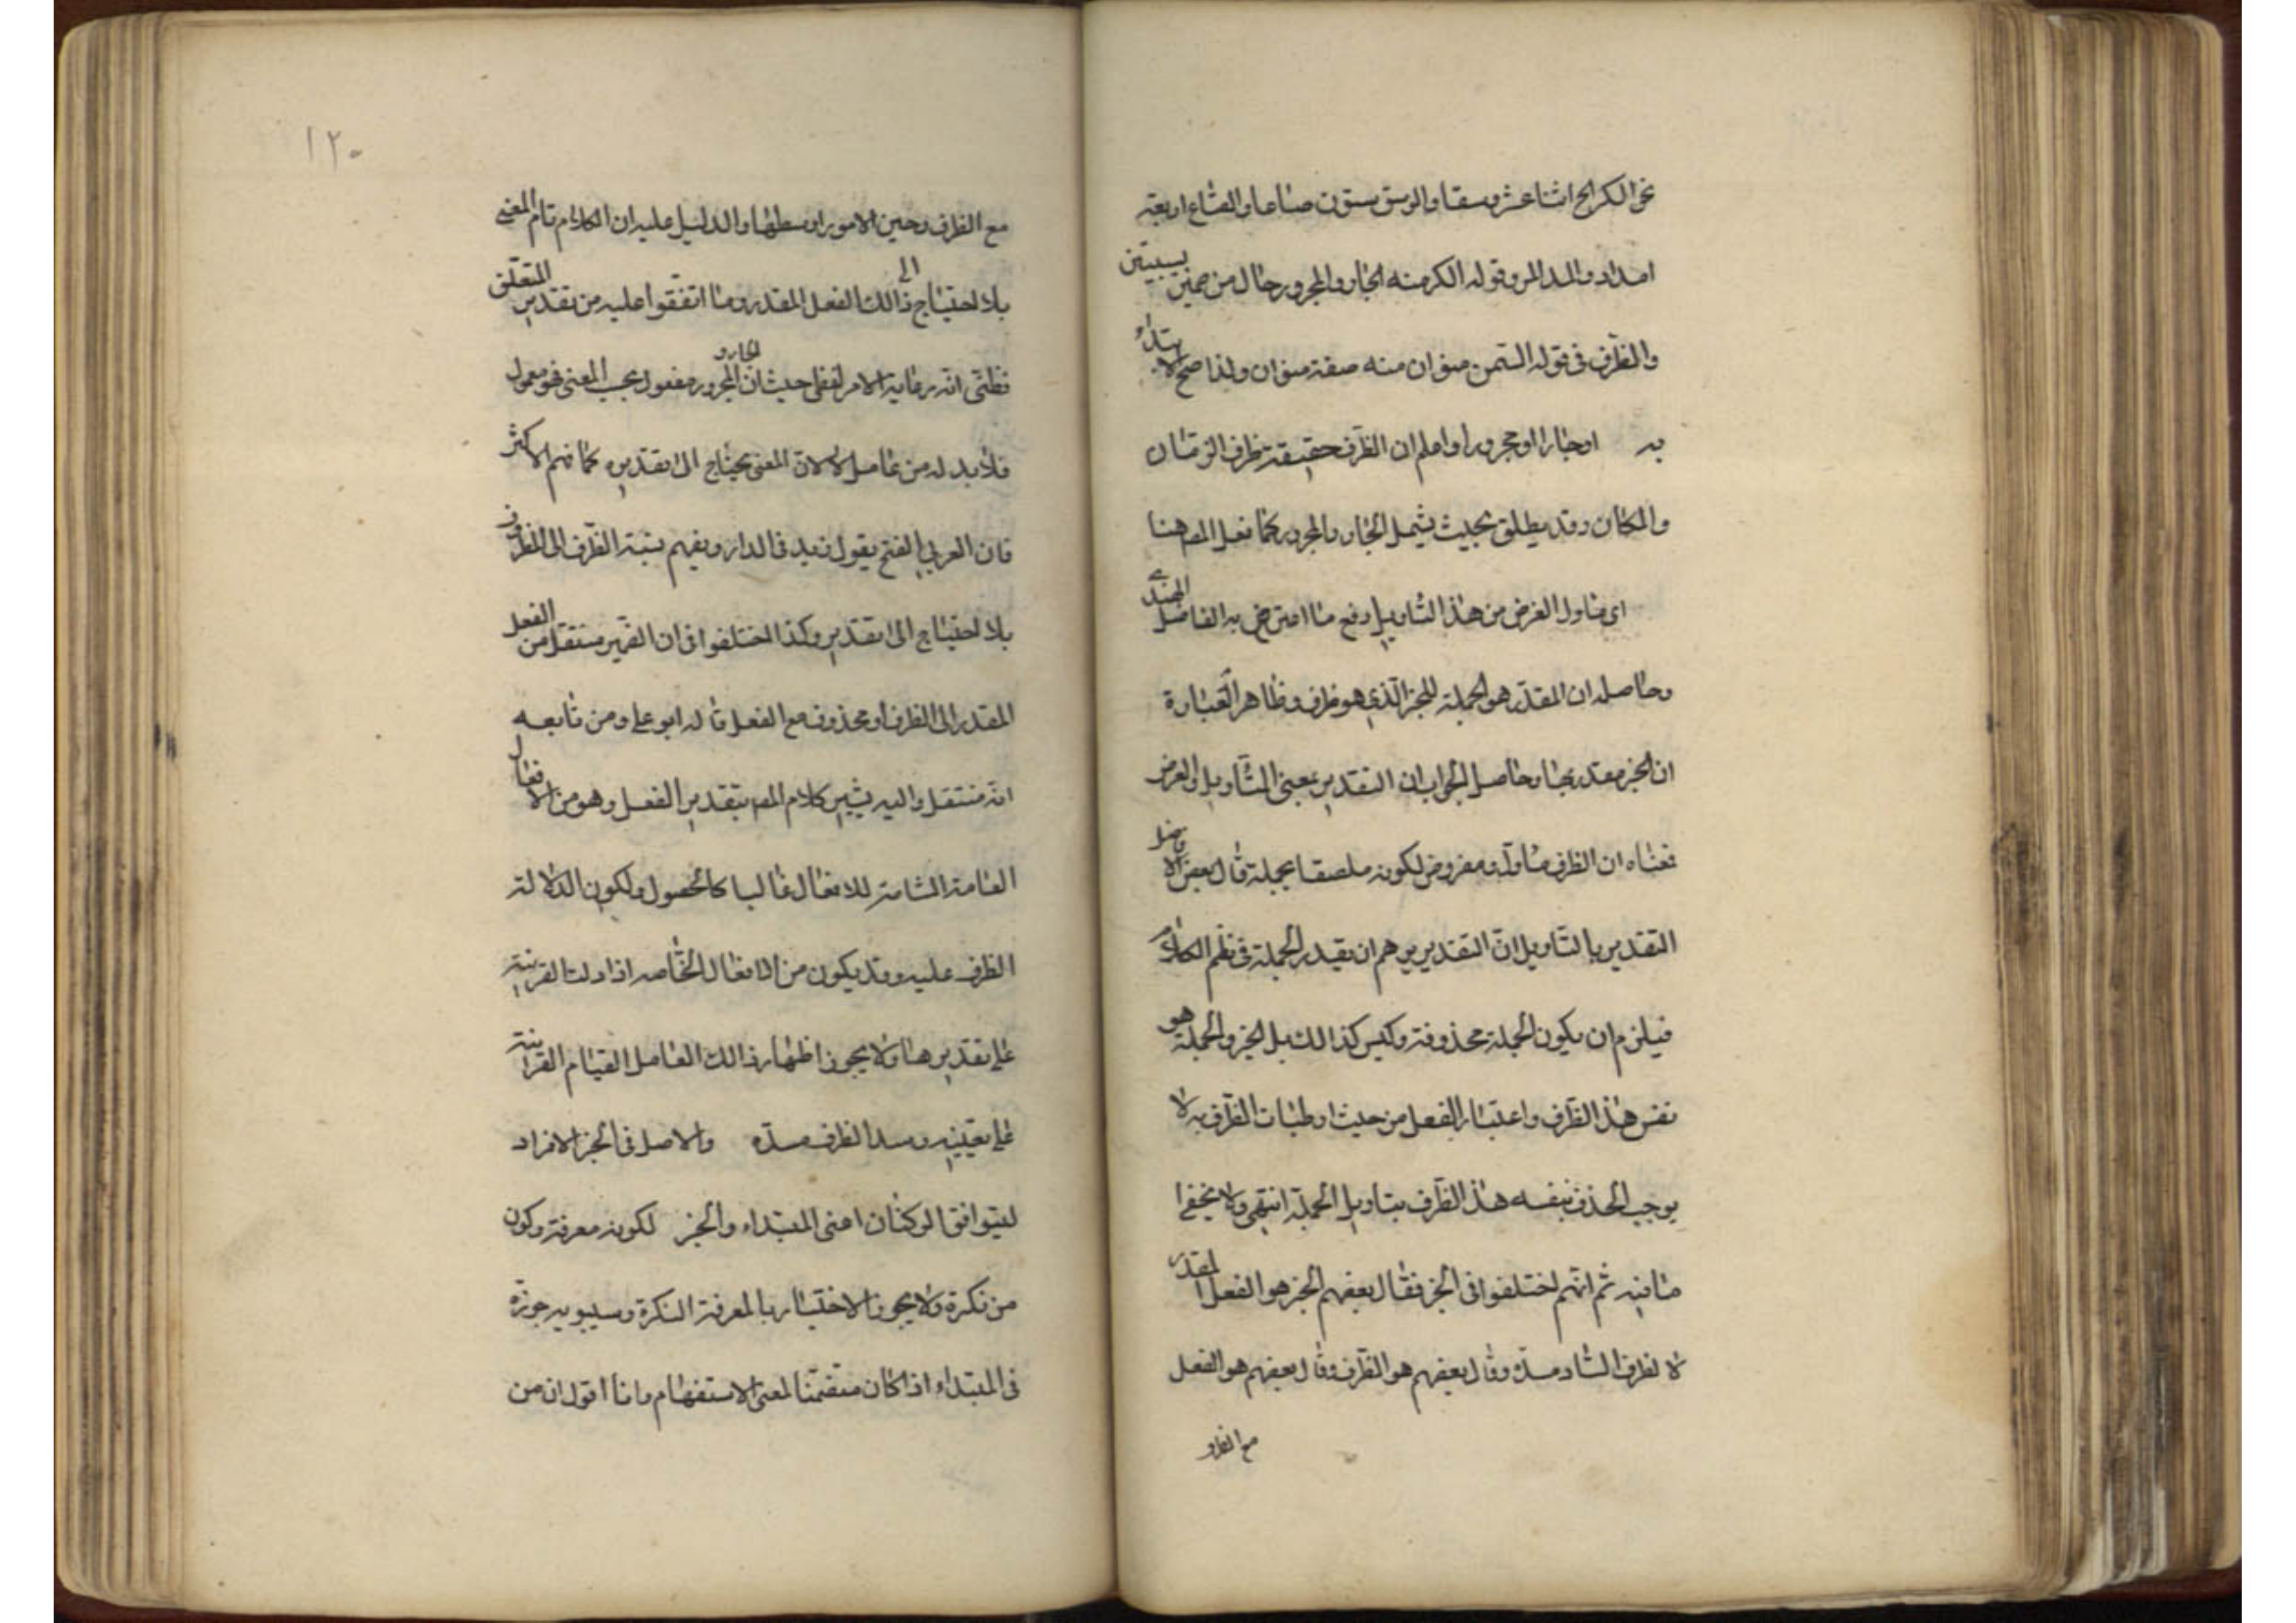 نحو الكر الخ اثنا عشر وسقا والوسق ستون صاعا والصاع اربعة
امداد والمد المر وقوله الكر منه الجار والمجرور حال من ضمير بستين
والظرف في قوله السمن منوان منه صفة منوان ولذا صح الابتداء
به او جارا او مجرورا واعلم ان الظرف حقيقة ظرف الزمان
والمكان وقد يطلق بحيث يشمل الجار والمجرور كما فعل المص هنا
اى ماول الغرض من هذا التاويل دفع ما اعترض به الفاضل الهندى
وحاصله ان المقدر هو الجملة للخبر الذي هو ظرف وظاهر العبارة
ان الخبر مقدر بها وحاصل الجواب ان التقدير بمعنى التاويل والغرض
فمعناه ان الظرف ماول ومفروض لكونه ملصقا بجملة قال بعض الافاضل
التقدير بالتاويل ان التقدير يرهم ان يقدر الجملة في نظم الكلام
فيلزم ان يكون الجملة محذوفة وليس كذالك بل الخبر والجملة هو
نفس هذا الظرف واعتبار الفعل من حيث ارطبات الظرف به لا
يوجب الحذف بنفسه هذا الظرف بتاويل الجملة انتهى ولا يخفى
ما فيه ثم انهم اختلفوا في الخبر فقال بعضهم الخبر هو الفعل المقدر
لا لظرف الساد مسده وقال بعضهم هو الظرف وقال بعضهم هو الفعل
مع الظرف
١٢٠
مع الظرف وخير الامور اوسطها والدليل عليه ان الكلام تام المعنى
بلا احتياج الى ذالك الفعل المقدر وما اتفقوا عليه من تقدير المتعلق
فظنى انه رعاية الامر لفظي حيث ان الجار و المجرور مفعول بحسب المعنى فهو معمول
فلا بد له من عامل لا لان المعنى يحتاج الى تقديره كما فهم الاكثر
فان العربي الفتح يقول زيد في الدار ويفهم نسبة الظرف الى المظروف
بلا احتياج الى تقدير وكذا اختلفوا في ان الضمير منتقل من الفعل
المقدر الى الظرف او محذوف مع الفعل قاله ابو على ومن تابعه
انه منتقل واليه يشير كلام المص بتقدير الفعل وهو من الافعال
العامة الشامة للافعال غالبا كالحصول ولكون الدلالة
الظرف عليه وقد يكون من الافعال الخاصه اذا دلت القرينة
على تقديرها ولا يجوز اظهار ذالك العامل القيام القراينة
على تعيينه وسد الظرف مسده والاصل في الخبر الافراد
ليتوافق الركنان اعنى المبتداء والخبر لكونه معرفة وكون
من نكرة ولا يجوز الاختيار بالمعرفة النكرة وسيبويه جوزه
في المبتداء اذا كان متضمنا لمعنى الاستفهام وانا اقول ان من